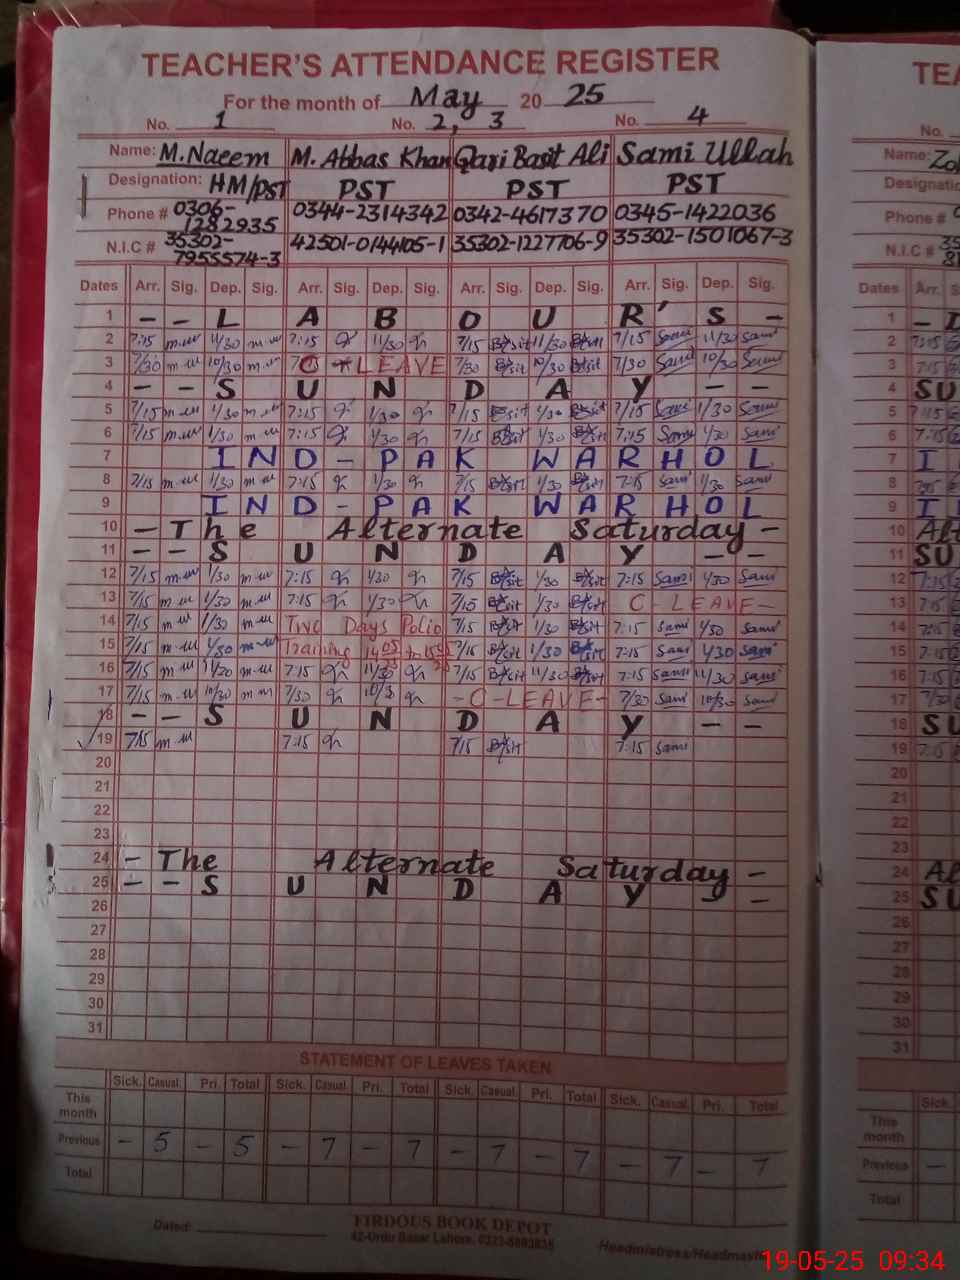 TEACHER'S ATTENDANCE REGISTER
For the month of May 20 25
No. 1 No. 2, 3 No. 4
Name: M. Naeem M. Abbas Khan Qari Basit Ali Sami Ullah
Designation: HM/PST PST PST PST
Phone # 0306-1282935 0344-2314342 0342-4617370 0345-1422036
N.I.C # 35302-7955574-3 42501-0144105-1 35302-1227706-9 35302-1501067-3
Dates Arr. Sig. Dep. Sig. Arr. Sig. Dep. Sig. Arr. Sig. Dep. Sig. Arr. Sig. Dep. Sig.
1 - - L A B O U R ' S -
2 7:15 11/30 7:15 11/30 7/15 Basit 11/30 Basit 7/15 Sami 11/30 Sami
3 7/30 10/30 C - LEAVE 7/30 Basit 10/30 Basit 7/30 Sami 10/30 Sami
4 - - S U N D A Y - -
5 7/15 1/30 7:15 1/30 7/15 Basit 1/30 Basit 7/15 Sami 1/30 Sami
6 7/15 1/30 7:15 1/30 7/15 Basit 1/30 Basit 7:15 Sami 1/30 Sami
7 I N D - P A K W A R H O L
8 7/15 1/30 7:15 1/30 7/15 Basit 1/30 Basit 7:15 Sami 1/30 Sami
9 I N D - P A K W A R H O L
10 - The Alternate Saturday -
11 - - S U N D A Y - -
12 7/15 1/30 7:15 1/30 7/15 Basit 1/30 Basit 7:15 Sami 1/30 Sami
13 7/15 1/30 7:15 1/30 7/15 Basit 1/30 Basit C - LEAVE -
14 7/15 1/30 Two Days Polio 7/15 Basit 1/30 Basit 7:15 Sami 1/30 Sami
15 7/15 1/30 Training 7/15 Basit 1/30 Basit 7:15 Sami 1/30 Sami
16 7/15 11/20 7:15 11/30 7/15 Basit 11/30 Basit 7:15 Sami 11/30 Sami
17 7/15 10/30 7/30 10/30 - C - LEAVE - 7/30 Sami 10/30 Sami
18 - - S U N D A Y - -
19 7/15 7:15 7/15 Basit 7:15 Sami
20
21
22
23
24 - The Alternate Saturday -
25 - - S U N D A Y -
26
27
28
29
30
31
STATEMENT OF LEAVES TAKEN
Sick. Casual. Pri. Total Sick. Casual. Pri. Total Sick. Casual. Pri. Total Sick. Casual. Pri. Total
This month
Previous - 5 - 5 - 7 - 7 - 7 - 7 - 7 - 7
Total
Dated:
FIRDOUS BOOK DEPOT
42-Urdu Bazar Lahore.
Headmistress/Headmaster
TEA
No.
Name:
Designatio
Phone #
N.I.C #
Dates Arr.
1
2
3
4 SU
5
6
7 I
8
9 I
10 Alt
11 SU
12
13
14
15
16
17
18 SU
19
20
21
22
23
24 Al
25 SU
26
27
28
29
30
31
Sick.
This month
Previous -
Total
19-05-25 09:34